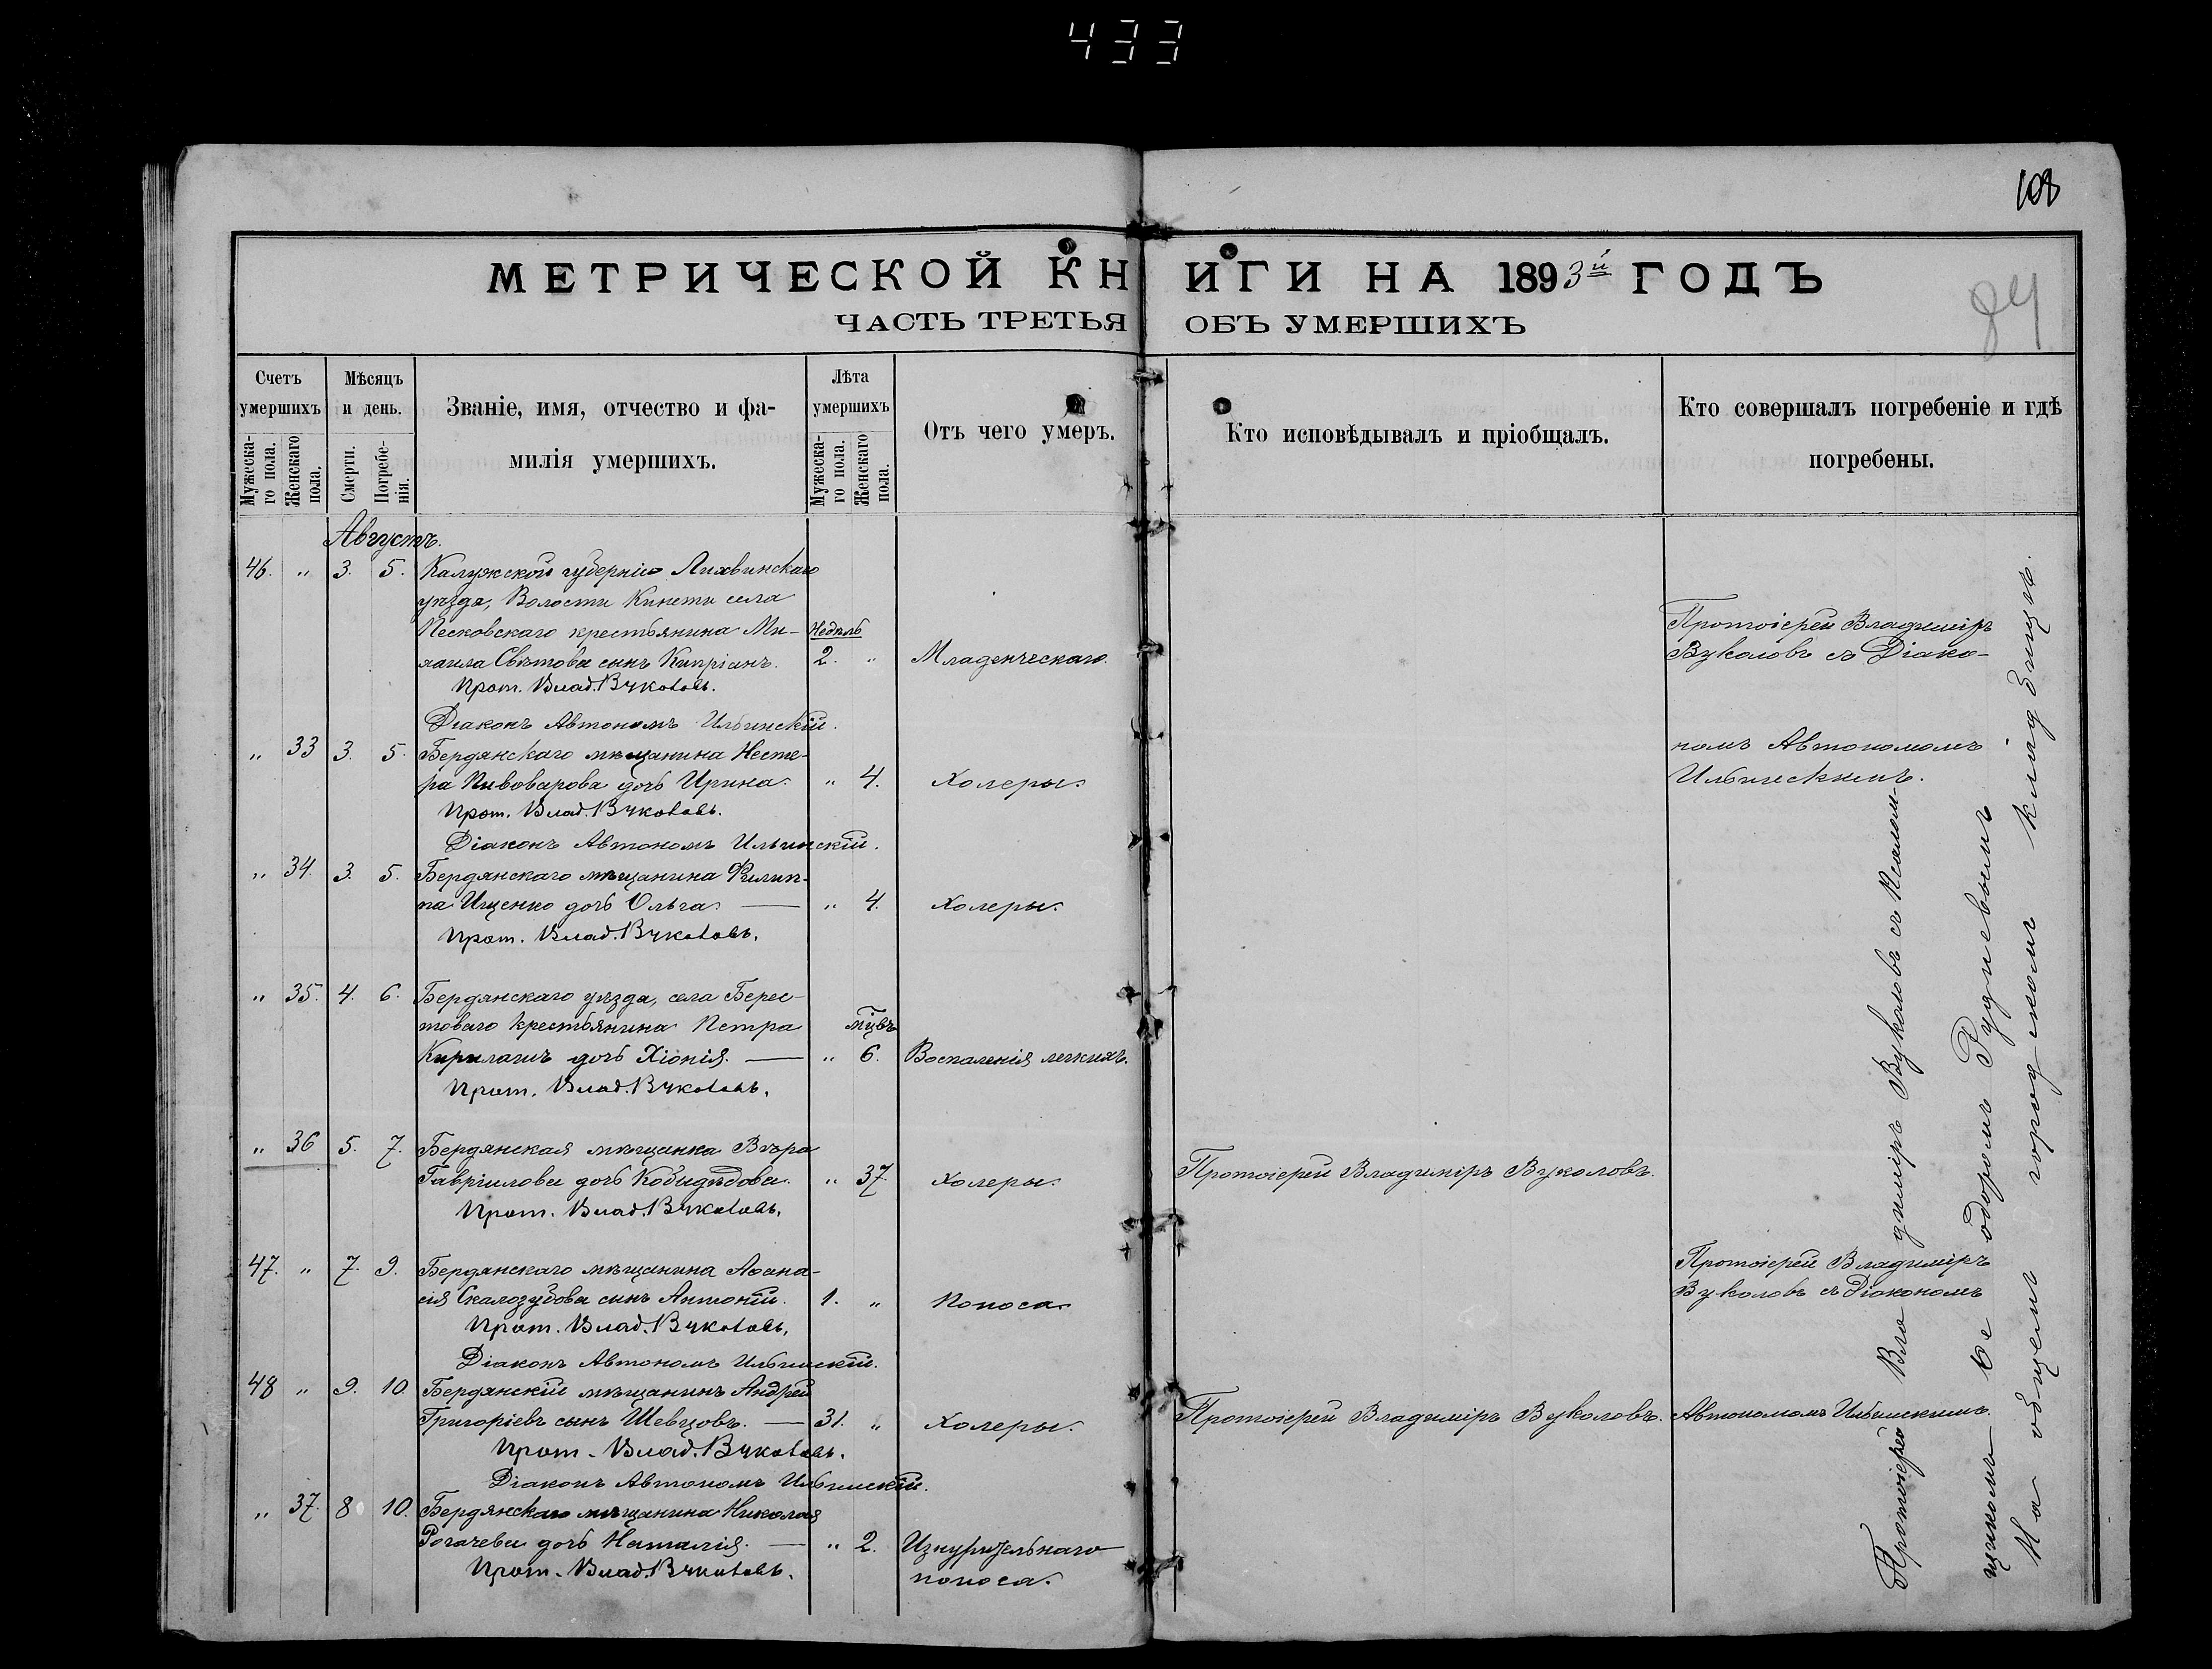 433
108
84
МЕТРИЧЕСКОЙ КНИГИ НА 1893й ГОДЪ
ЧАСТЬ ТРЕТЬЯ ОБЪ УМЕРШИХЪ
Счетъ умершихъ
Мужескаго пола.
Женскаго пола.
Мѣсяцъ и день.
Смерти.
Погребенія.
Званіе, имя, отчество и фамилія умершихъ.
Лѣта умершихъ
Мужескаго пола.
Женскаго пола.
Отъ чего умеръ.
Кто исповѣдывалъ и пріобщалъ.
Кто совершалъ погребеніе и гдѣ погребены.
Августъ.
46. " 3. 5. Калужской губерніи Лихвинскаго
уѣзда, Волости Кинети села
Песковскаго крестьянина Ми- Недѣль
хаила Свѣтова сынъ Кипріанъ. 2. " Младенческаго.
Прот. Влад. Вуколовъ.
Діаконъ Автономъ Ильинскій.
Протоіерей Владиміръ
Вуколовъ съ Діако-
" 33 3. 5. Бердянскаго мѣщанина Несте-
ра Пивоварова дочь Ирина. " 4. Холеры.
Прот. Влад. Вуколовъ.
Діаконъ Автономъ Ильинскій.
номъ Автономомъ
Ильинскимъ.
" 34. 3. 5. Бердянскаго мѣщанина Филип-
па Ищенко дочь Ольга. — " 4. Холеры.
Прот. Влад. Вуколовъ.
" 35. 4. 6. Бердянскаго уѣзда, села Берес-
товаго крестьянина Петра мцвъ
Кирилашъ дочь Хіонія. — " 6. Воспаленія легкихъ.
Прот. Влад. Вуколовъ.
" 36 5. 7. Бердянская мѣщанка Вѣра
Гавріилова дочь Кобидѣдова. " 37. Холеры. Протоіерей Владиміръ Вуколовъ.
Прот. Влад. Вуколовъ.
47. " 7. 9. Бердянскаго мѣщанина Аѳана-
сія Скалозубова сынъ Антоній. 1. " Поноса.
Прот. Влад. Вуколовъ.
Діаконъ Автономъ Ильинскій.
Протоіерей Владиміръ
Вуколовъ съ Діакономъ
48 " 9. 10. Бердянскій мѣщанинъ Андрей
Григоріевъ сынъ Шевцовъ. — 31. " Холеры. Протоіерей Владиміръ Вуколовъ. Автономомъ Ильинскимъ.
Прот. Влад. Вуколовъ.
Діаконъ Автономъ Ильинскій.
" 37. 8 10. Бердянскаго мѣщанина Николая
Рогачева дочь Наталія. — " 2. Изнурительнаго
поноса.
Прот. Влад. Вуколовъ.
Протоіерей Владиміръ Вуколовъ съ Псалом-
щикомъ Ѳеодоромъ Рудневымъ
На общемъ городскомъ кладбищѣ.